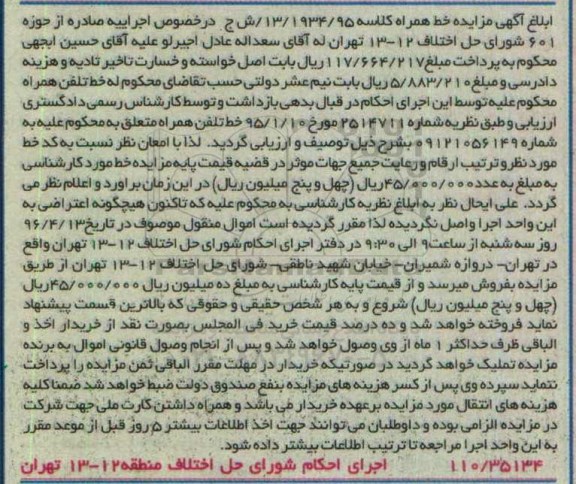 ابلاغ آگهی مزایده خط همراه کلاسه ۱۳/۱۹۳۴/۹۵/ش ج درخصوص اجراییه صادره از حوزه
۶۰۱ شورای حل اختلاف ۱۲-۱۳ تهران له آقای سعداله عادل اجیرلو علیه آقای حسین ایجهی
محکوم به پرداخت مبلغ ۱۱۷/۶۶۴/۲۱۷ ریال بابت اصل خواسته و خسارت تاخیر تادیه و هزینه
دادرسی و مبلغ ۵/۸۸۳/۲۱۰ ریال بابت نیم عشر دولتی حسب تقاضای محکوم له خط تلفن همراه
محکوم علیه توسط این اجرای احکام در قبال بدهی بازداشت و توسط کارشناس رسمی دادگستری
ارزیابی و طبق نظریه شماره ۲۵۱۴۷۱۱ مورخ ۹۵/۱/۱۰ خط تلفن همراه متعلق به محکوم علیه به
شماره ۰۹۱۲۱۰۵۶۱۴۹ بشرح ذیل توصیف و ارزیابی گردید. لذا با امعان نظر نسبت به کد خط
مورد نظر و ترتیب ارقام و رعایت جمیع جهات موثر در قضیه قیمت پایه مزایده خط مورد کارشناسی
به مبلغ به عدد ۴۵/۰۰۰/۰۰۰ ریال (چهل و پنج میلیون ریال) در این زمان براورد و اعلام نظر می
گردد. علی ایحال نظر به ابلاغ نظریه کارشناسی به محکوم علیه که تاکنون هیچگونه اعتراضی به
این واحد اجرا واصل نگردیده لذا مقرر گردیده است اموال منقول موصوف در تاریخ ۹۶/۴/۱۳
روز سه شنبه از ساعت ۹ الی ۹:۳۰ در دفتر اجرای احکام شورای حل اختلاف ۱۲-۱۳ تهران واقع
در تهران- دروازه شمیران- خیابان شهید ناطقی- شورای حل اختلاف ۱۲-۱۳ تهران از طریق
مزایده بفروش میرسد و از قیمت پایه کارشناسی به مبلغ ده میلیون ریال ۴۵/۰۰۰/۰۰۰ ریال
(چهل و پنج میلیون ریال) شروع و به هر شخص حقیقی و حقوقی که بالاترین قسمت پیشنهاد
نماید فروخته خواهد شد و ده درصد قیمت خرید فی المجلس بصورت نقد از خریدار اخذ و
الباقی ظرف حداکثر ۱ ماه از وی وصول خواهد شد و پس از انجام وصول قانونی اموال به برنده
مزایده تملیک خواهد گردید در صورتیکه خریدار در مهلت مقرر الباقی ثمن مزایده را پرداخت
ننماید سپرده وی پس از کسر هزینه های مزایده بنفع صندوق دولت ضبط خواهد شد ضمنا کلیه
هزینه های انتقال مورد مزایده برعهده خریدار می باشد و همراه داشتن کارت ملی جهت شرکت
در مزایده الزامی بوده و داوطلبان می توانند جهت اخذ اطلاعات بیشتر ۵ روز قبل از موعد مقرر
به این واحد اجرا مراجعه تا ترتیب اطلاعات بیشتر داده شود.
۱۱۰/۳۵۱۳۴ اجرای احکام شورای حل اختلاف منطقه ۱۲-۱۳ تهران